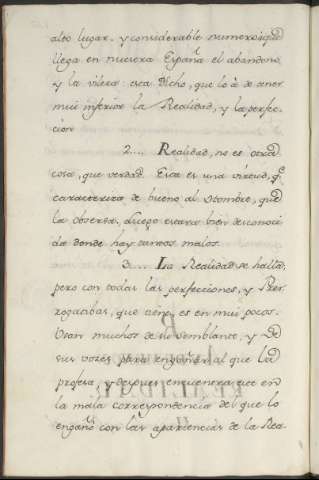 alto lugar, y considerable numero; aqui
llega en nuestra España el abandono,
y la vileza: esta dicho, que lo à de tener
mui inferior la Realidad, y la perfec-
cion
2.... Realidad, no es otra
cosa, que verdad. Esta es una virtud, q.e
caracteriza de bueno al Hombre, que
la observa. Luego estara bien desconoci-
da donde hay tantos malos.
3.... La Realidad se halla,
pero con todas las perfecciones, y Prer-
rogatibas, que tiene, es en mui pocos.
Usan muchos de su semblante, y de
sus vozes para engañar al que la
profesa, y despues encuentra este en
la mala correspondencia del que lo
engañó con las apariencias de la Rea-